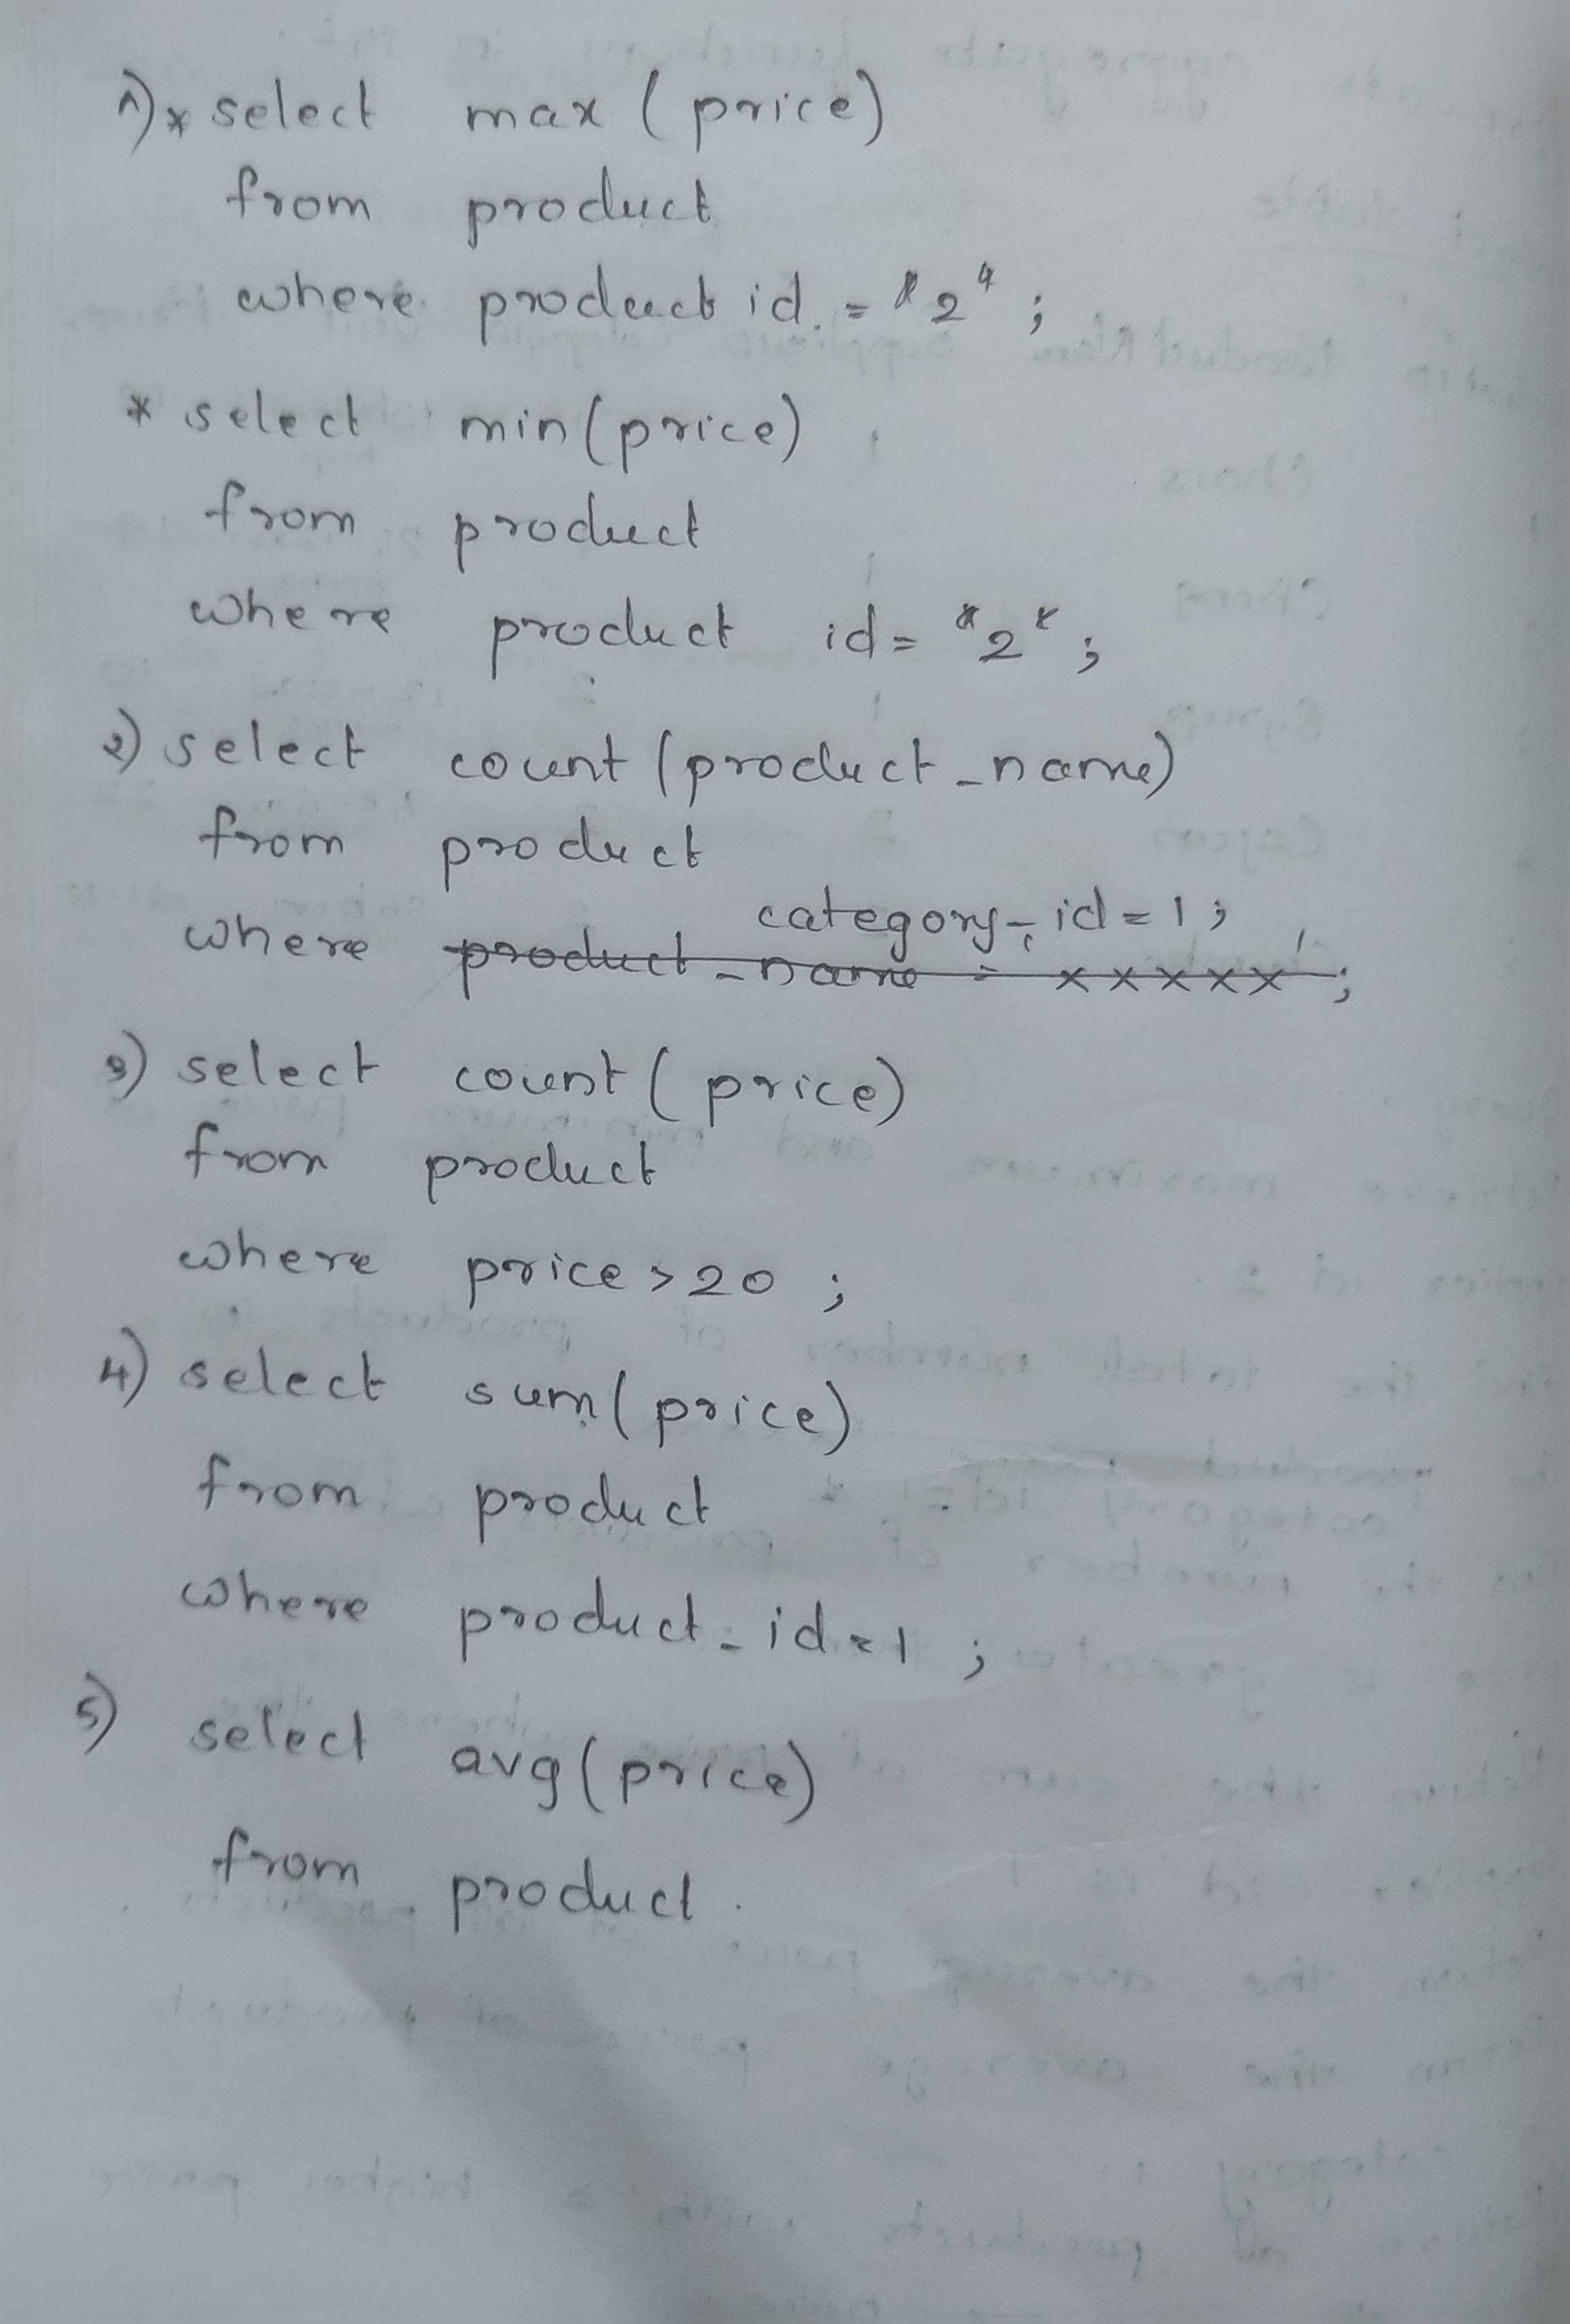 1) * select max (price)
from product
where product id = "2" ;
* select min (price)
from product
where product id = "2" ;
2) select count (product_name)
from product
where category_id = 1 ;
3) select count ( price)
from product
where price > 20 ;
4) select sum (price)
from product
where product_id = 1 ;
5) select avg (price)
from product .